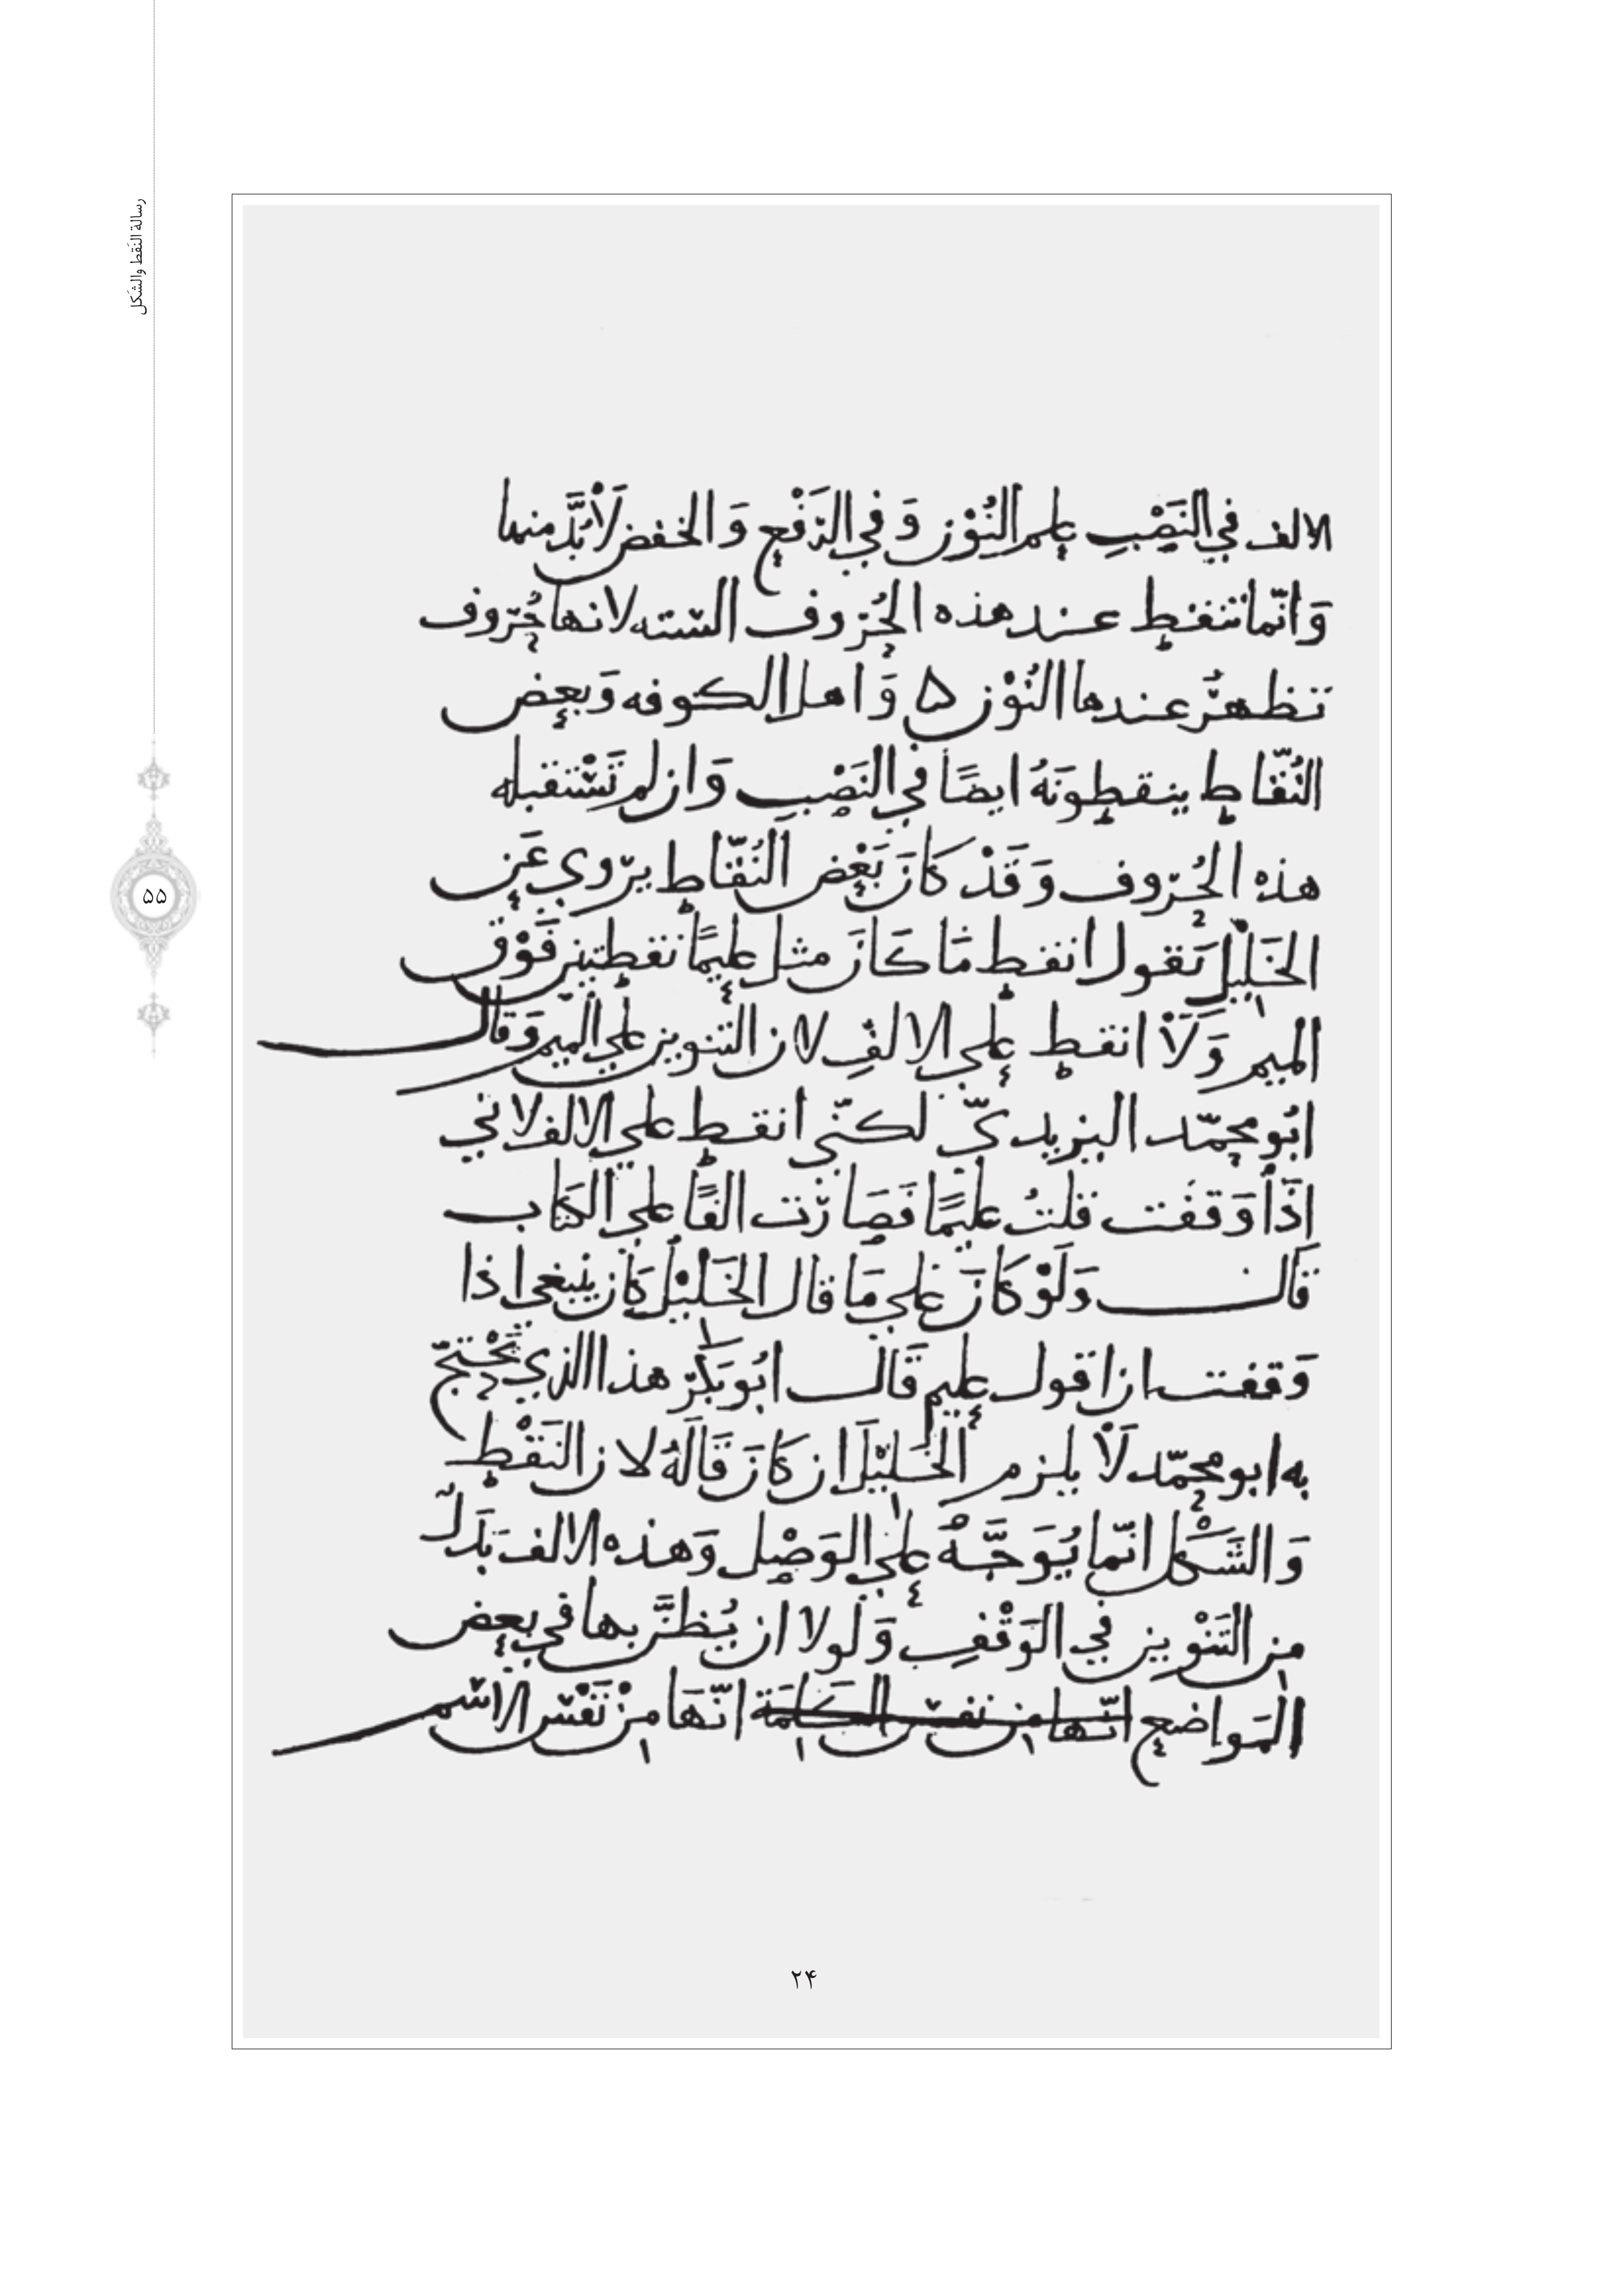 رسالة النقط والشكل
الالف في النَصْبِ علم النُوْن وَ في الرَفْعِ وَ الخفض لَا بُدَّ منهما
وَانّما تنقط عند هذه الحُرُوف السّته لانها حُرّوف
تظهرُ عندها النُوْن ۵ وَ اهل الكوفه وَبعض
النُقّاط ينقطونَهُ ايضًا في النَصْبِ وَان لم تَسْتقبله
هذه الحُرّوف وَ قَدْ كَانَ بَعْض النُقّاط يرّوي عَن
الخَلِيْل تَقول انقط مَا كَانَ مثل عليمًا نقطتين فَوْق
الميم وَلَا انقط على الالفِ لان التنوين على الميم وَقال
ابُو محمّد اليزيديّ لكنّي انقط على الالف لاني
اذَا وَقَفت قلتُ عليمًا فَصَارّت الفًا على الكتَاب
قَال وَلَوْ كَانَ عَلي مَا قال الخَليْل كَان ينبغي اذا
وَقفت ان اقول عليم قَال ابُو بَكرّ هذا الذي يَحْتجّ
به ابو محمّد لَا يلزم الخَليْلَ ان كَانَ قَالَهُ لان النَقْط
وَ الشَكْل انّما يُوَجَّهُ على الوَصْل وَهذه الالف بَدَل
من التَنْوين في الوَقْفِ وَلولا ان يُظَنَّ بها في بعض
المَواضع انّها من نفسْ الكَلِمَة انّهَا مِنْ نَفْس الاسْم
۲۴
۵۵